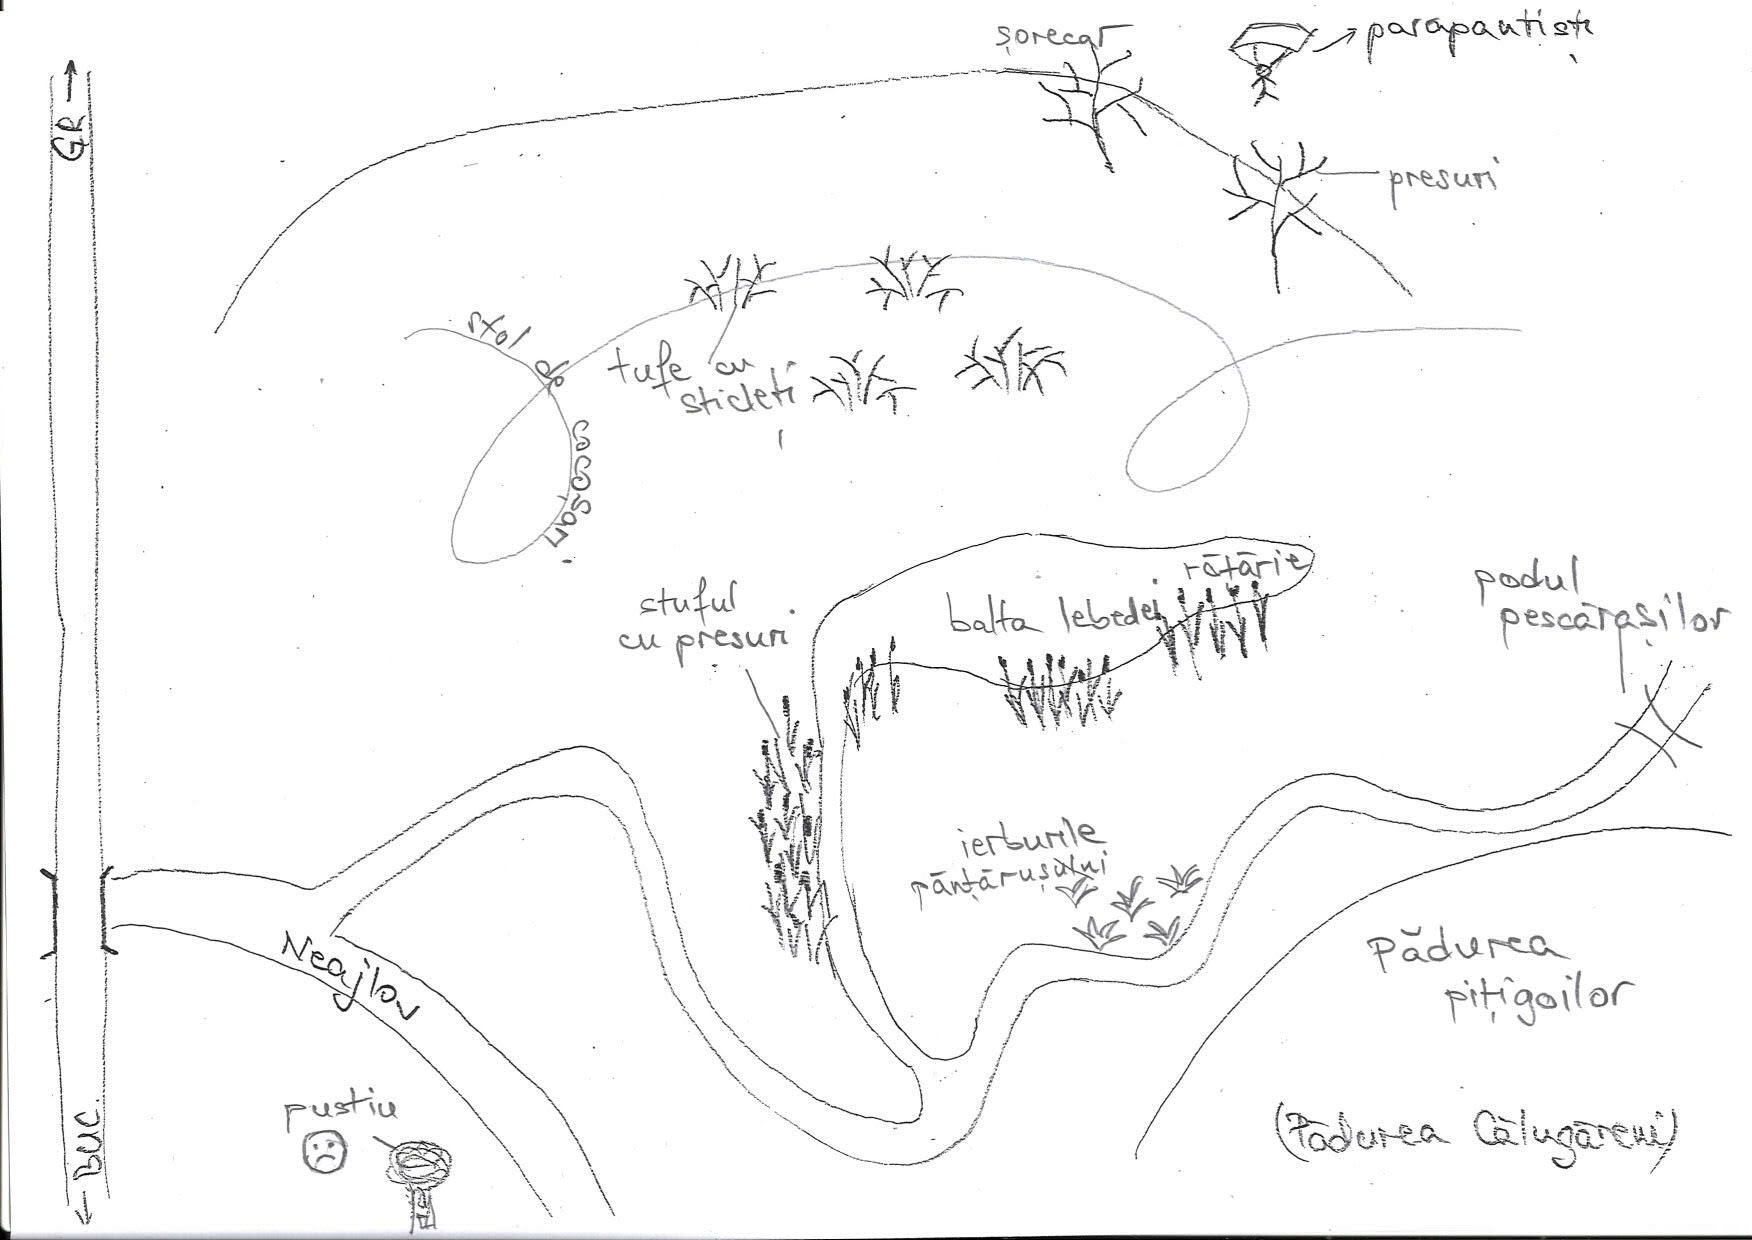 șorecar
parapantiști
GR →
presuri
stol de
cocoșari
tufe cu
sticleți
rățărie
balta lebedei
podul
pescărașilor
stuful
cu presuri
ierburile
pănțărușului
Neajlov
Pădurea
pițigoilor
pustiu
(Pădurea Călugăreni)
← BUC.